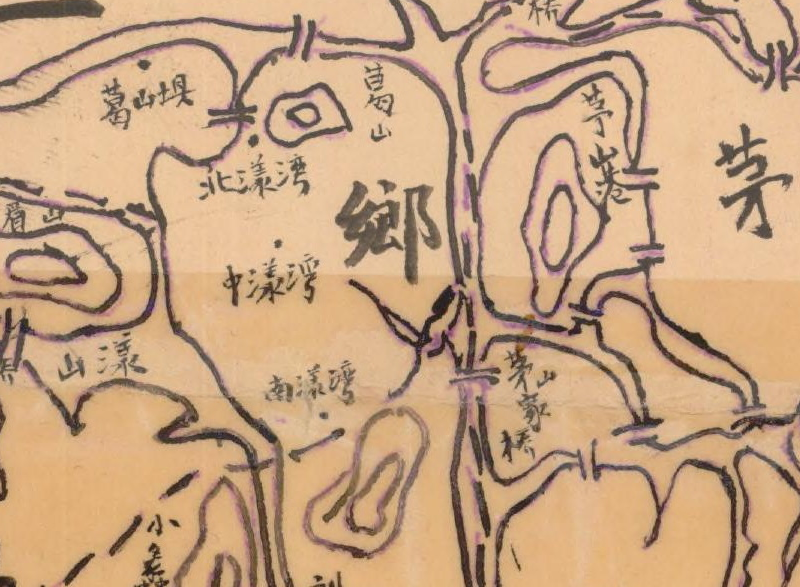 葛山埧
葛山
北漾湾
中漾湾
南漾湾
鄉
眉山
山漾
茅山港
茅山家橋
茅
橋
小